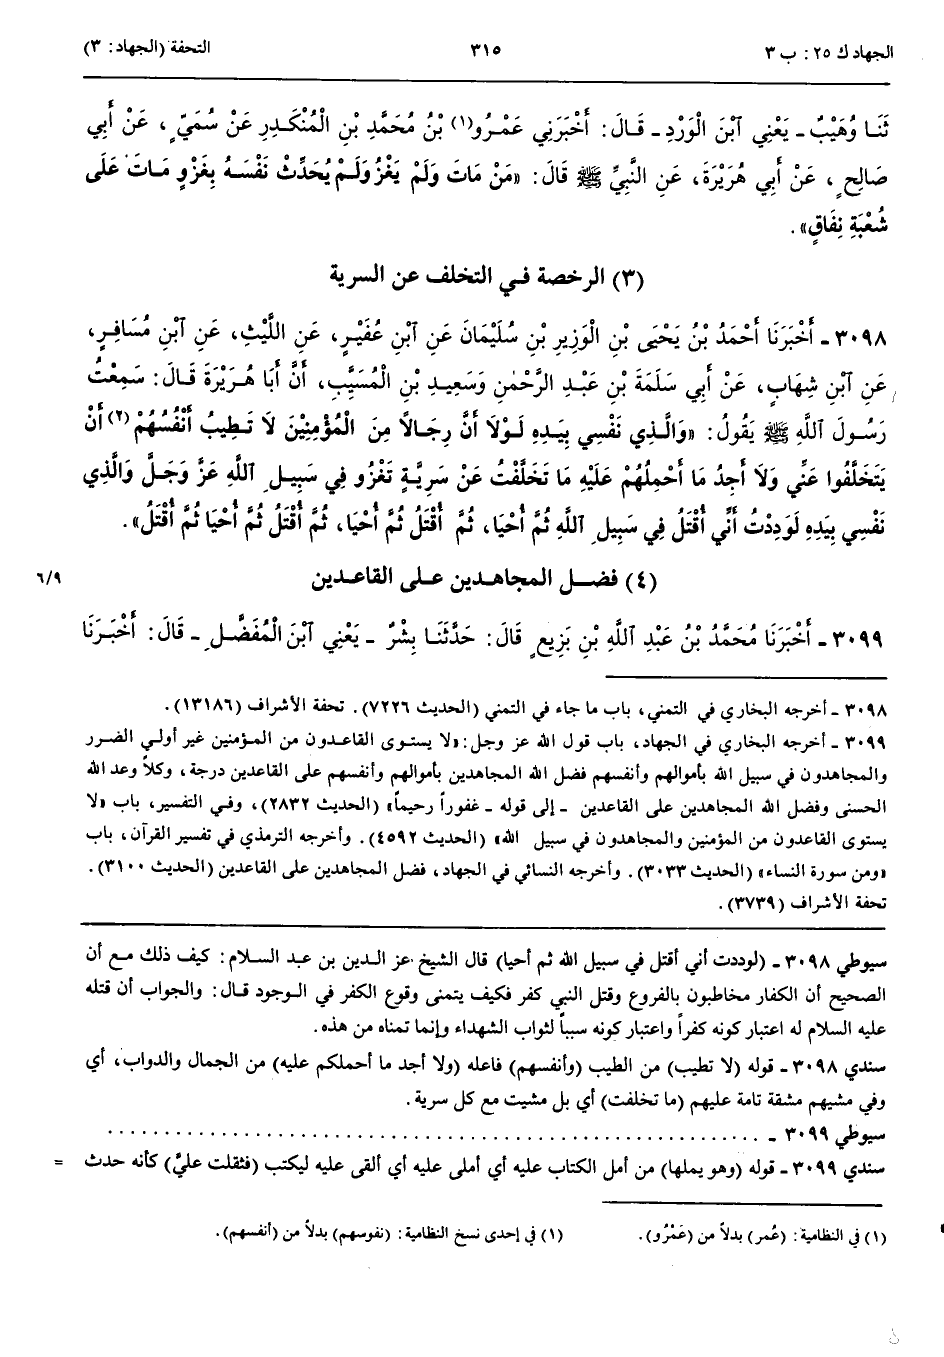 الجهاد ك ٢٥ : ب ٣
٣١٥
التحفة (الجهاد: ٣)
ثَنَا وُهَيْبٌ - يَعْنِي ٱبْنَ الْوَرْدِ - قَالَ: أَخْبَرَنِي عَمْرُو(١) بْنُ مُحَمَّدِ بْنِ الْمُنْكَدِرِ عَنْ سُمَيٍّ، عَنْ أَبِي
صَالِحٍ، عَنْ أَبِي هُرَيْرَةَ، عَنِ النَّبِيِّ ﷺ قَالَ: «مَنْ مَاتَ وَلَمْ يَغْزُ وَلَمْ يُحَدِّثْ نَفْسَهُ بِغَزْوٍ مَاتَ عَلَى
شُعْبَةِ نِفَاقٍ».
(٣) الرخصة في التخلف عن السرية
٣٠٩٨ - أَخْبَرَنَا أَحْمَدُ بْنُ يَحْيَى بْنِ الْوَزِيرِ بْنِ سُلَيْمَانَ عَنِ ٱبْنِ عُفَيْرٍ، عَنِ اللَّيْثِ، عَنِ ٱبْنِ مُسَافِرٍ،
عَنِ ٱبْنِ شِهَابٍ، عَنْ أَبِي سَلَمَةَ بْنِ عَبْدِ الرَّحْمٰنِ وَسَعِيدِ بْنِ الْمُسَيَّبِ، أَنَّ أَبَا هُرَيْرَةَ قَالَ: سَمِعْتُ
رَسُولَ ٱللَّهِ ﷺ يَقُولُ: «وَالَّذِي نَفْسِي بِيَدِهِ لَوْلَا أَنَّ رِجَالاً مِنَ الْمُؤْمِنِينَ لَا تَطِيبُ أَنْفُسُهُمْ(٢) أَنْ
يَتَخَلَّفُوا عَنِّي وَلَا أَجِدُ مَا أَحْمِلُهُمْ عَلَيْهِ مَا تَخَلَّفْتُ عَنْ سَرِيَّةٍ تَغْزُو فِي سَبِيلِ ٱللَّهِ عَزَّ وَجَلَّ وَالَّذِي
نَفْسِي بِيَدِهِ لَوَدِدْتُ أَنِّي أُقْتَلُ فِي سَبِيلِ ٱللَّهِ ثُمَّ أُحْيَا، ثُمَّ أُقْتَلُ ثُمَّ أُحْيَا، ثُمَّ أُقْتَلُ ثُمَّ أُحْيَا ثُمَّ أُقْتَلُ».
(٤) فضل المجاهدين على القاعدين
٦/٩
٣٠٩٩ - أَخْبَرَنَا مُحَمَّدُ بْنُ عَبْدِ ٱللَّهِ بْنِ بَزِيعٍ قَالَ: حَدَّثَنَا بِشْرٌ - يَعْنِي ٱبْنَ الْمُفَضَّلِ - قَالَ: أَخْبَرَنَا
٣٠٩٨ - أخرجه البخاري في التمني، باب ما جاء في التمني (الحديث ٧٢٢٦). تحفة الأشراف (١٣١٨٦).
٣٠٩٩ - أخرجه البخاري في الجهاد، باب قول الله عز وجل: «لا يستوى القاعدون من المؤمنين غير أولي الضرر
والمجاهدون في سبيل الله بأموالهم وأنفسهم فضل الله المجاهدين بأموالهم وأنفسهم على القاعدين درجة، وكلاً وعد الله
الحسنى وفضل الله المجاهدين على القاعدين - إلى قوله - غفوراً رحيماً» (الحديث ٢٨٣٢)، وفي التفسير، باب «لا
يستوى القاعدون من المؤمنين والمجاهدون في سبيل الله» (الحديث ٤٥٩٢). وأخرجه الترمذي في تفسير القرآن، باب
«ومن سورة النساء» (الحديث ٣٠٣٣). وأخرجه النسائي في الجهاد، فضل المجاهدين على القاعدين (الحديث ٣١٠٠).
تحفة الأشراف (٣٧٣٩).
سيوطي ٣٠٩٨ - (لوددت أني أقتل في سبيل الله ثم أحيا) قال الشيخ عز الدين بن عبد السلام: كيف ذلك مع أن
الصحيح أن الكفار مخاطبون بالفروع وقتل النبي كفر فكيف يتمنى وقوع الكفر في الوجود قال: والجواب أن قتله
عليه السلام له اعتبار كونه كفراً واعتبار كونه سبباً لثواب الشهداء وإنما تمناه من هذه.
سندي ٣٠٩٨ - قوله (لا تطيب) من الطيب (وأنفسهم) فاعله (ولا أجد ما أحملكم عليه) من الجمال والدواب، أي
وفي مشيهم مشقة تامة عليهم (ما تخلفت) أي بل مشيت مع كل سرية.
سيوطي ٣٠٩٩ - ........................................................
سندي ٣٠٩٩ - قوله (وهو يملها) من أمل الكتاب عليه أي أملى عليه أي ألقى عليه ليكتب (فثقلت عليّ) كأنه حدث =
(١) في النظامية: (عُمر) بدلاً من (عَمْرُو).
(١) في إحدى نسخ النظامية: (نفوسهم) بدلاً من (أنفسهم).